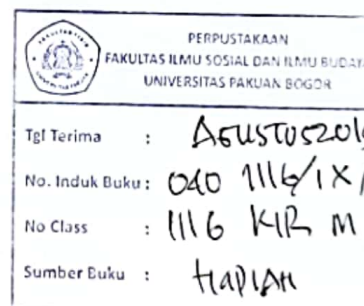 PERPUSTAKAAN
FAKULTAS ILMU SOSIAL DAN ILMU BUDAYA
UNIVERSITAS PAKUAN BOGOR
Tgl Terima : AGUSTUS 201
No. Induk Buku : 040 1116/IX/
No Class : 1116 KIR M
Sumber Buku : HADIAH